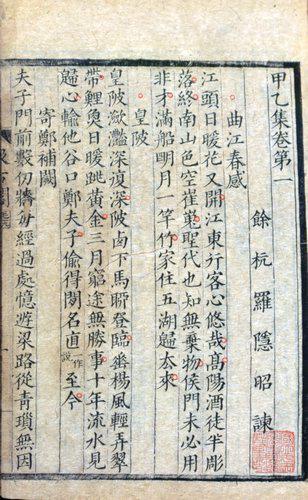 甲乙集卷第一
餘杭羅隱昭諫
曲江春感
江頭日暖花又開江東行客心悠哉髙陽酒徒半彫
落終南山色空崔嵬聖代也知無棄物侯門未必用
非才滿船明月一竿竹家住五湖歸厺來
皇陂
皇陂瀲灧深復深陂西下馬聊登臨垂楊風輕弄翠
帶鯉魚日暖跳黃金三月窮途無勝事十年流水見
歸心輸他谷口鄭夫子偷得閑名直一作說至今
寄鄭補闕
夫子門前數仞牆每經過處憶遊梁路從青瑣無因